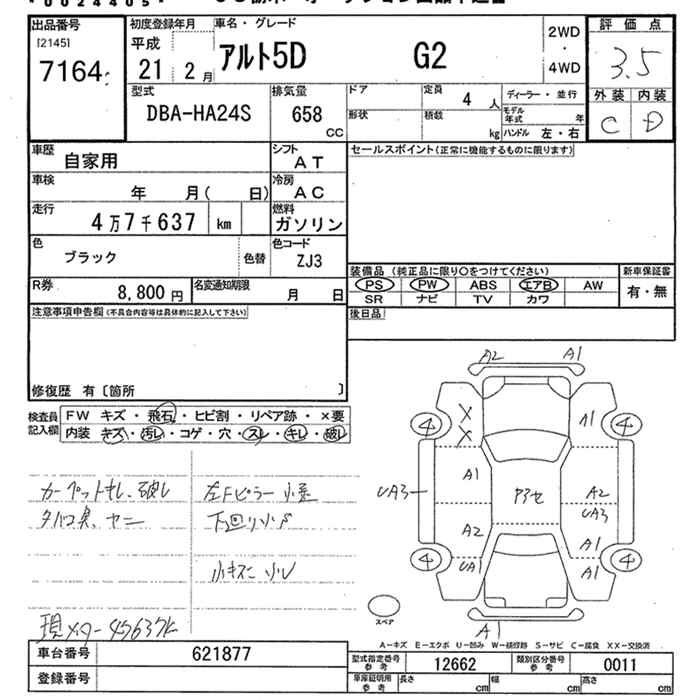 *00244051*
出品番号
[2145]
7164
初度登録年月
平成
21 2月
車名・グレード
アルト5D G2
2WD
・
4WD
評価点
3.5
外装 内装
C D
型式
DBA-HA24S
排気量
658
CC
ドア
定員
4 人
形状
積載
kg
ディーラー・並行
モデル年式 年
ハンドル 左・右
車歴
自家用
シフト
AT
車検
年 月( 日)
冷房
AC
走行
4万7千637 km
燃料
ガソリン
色
ブラック
色替
色コード
ZJ3
R券
8,800円
名変通知期限
月 日
セールスポイント(正常に機能するものに限ります)
装備品 (純正品に限り○をつけてください)
PS PW ABS エアB AW
SR ナビ TV カワ
新車保証書
有・無
後日品
注意事項申告欄(不具合内容等は具体的に記入して下さい)
修復歴 有〔箇所 〕
検査員記入欄
FW キズ・飛石・ヒビ割・リペア跡・×要
内装 キズ・汚レ・コゲ・穴・スレ・キレ・破レ
カーペットキレ、破レ
タバコ臭、ヤニ
左Fピラー小歪
下回り小サビ
小キズ、小凹
現メーター 47637k
A2 A1
4 X X A1 4
A1
UA3 Pアセ A2
UA3
A2 A1
4 UA1 A1 4
スペア
A1
A-キズ E-エクボ U-凹み W-補修跡 S-サビ C-腐食 XX-交換済
車台番号
621877
登録番号
型式指定番号参考
12662
類別区分番号参考
0011
車庫証明用参考
長さ cm
幅 cm
高さ cm